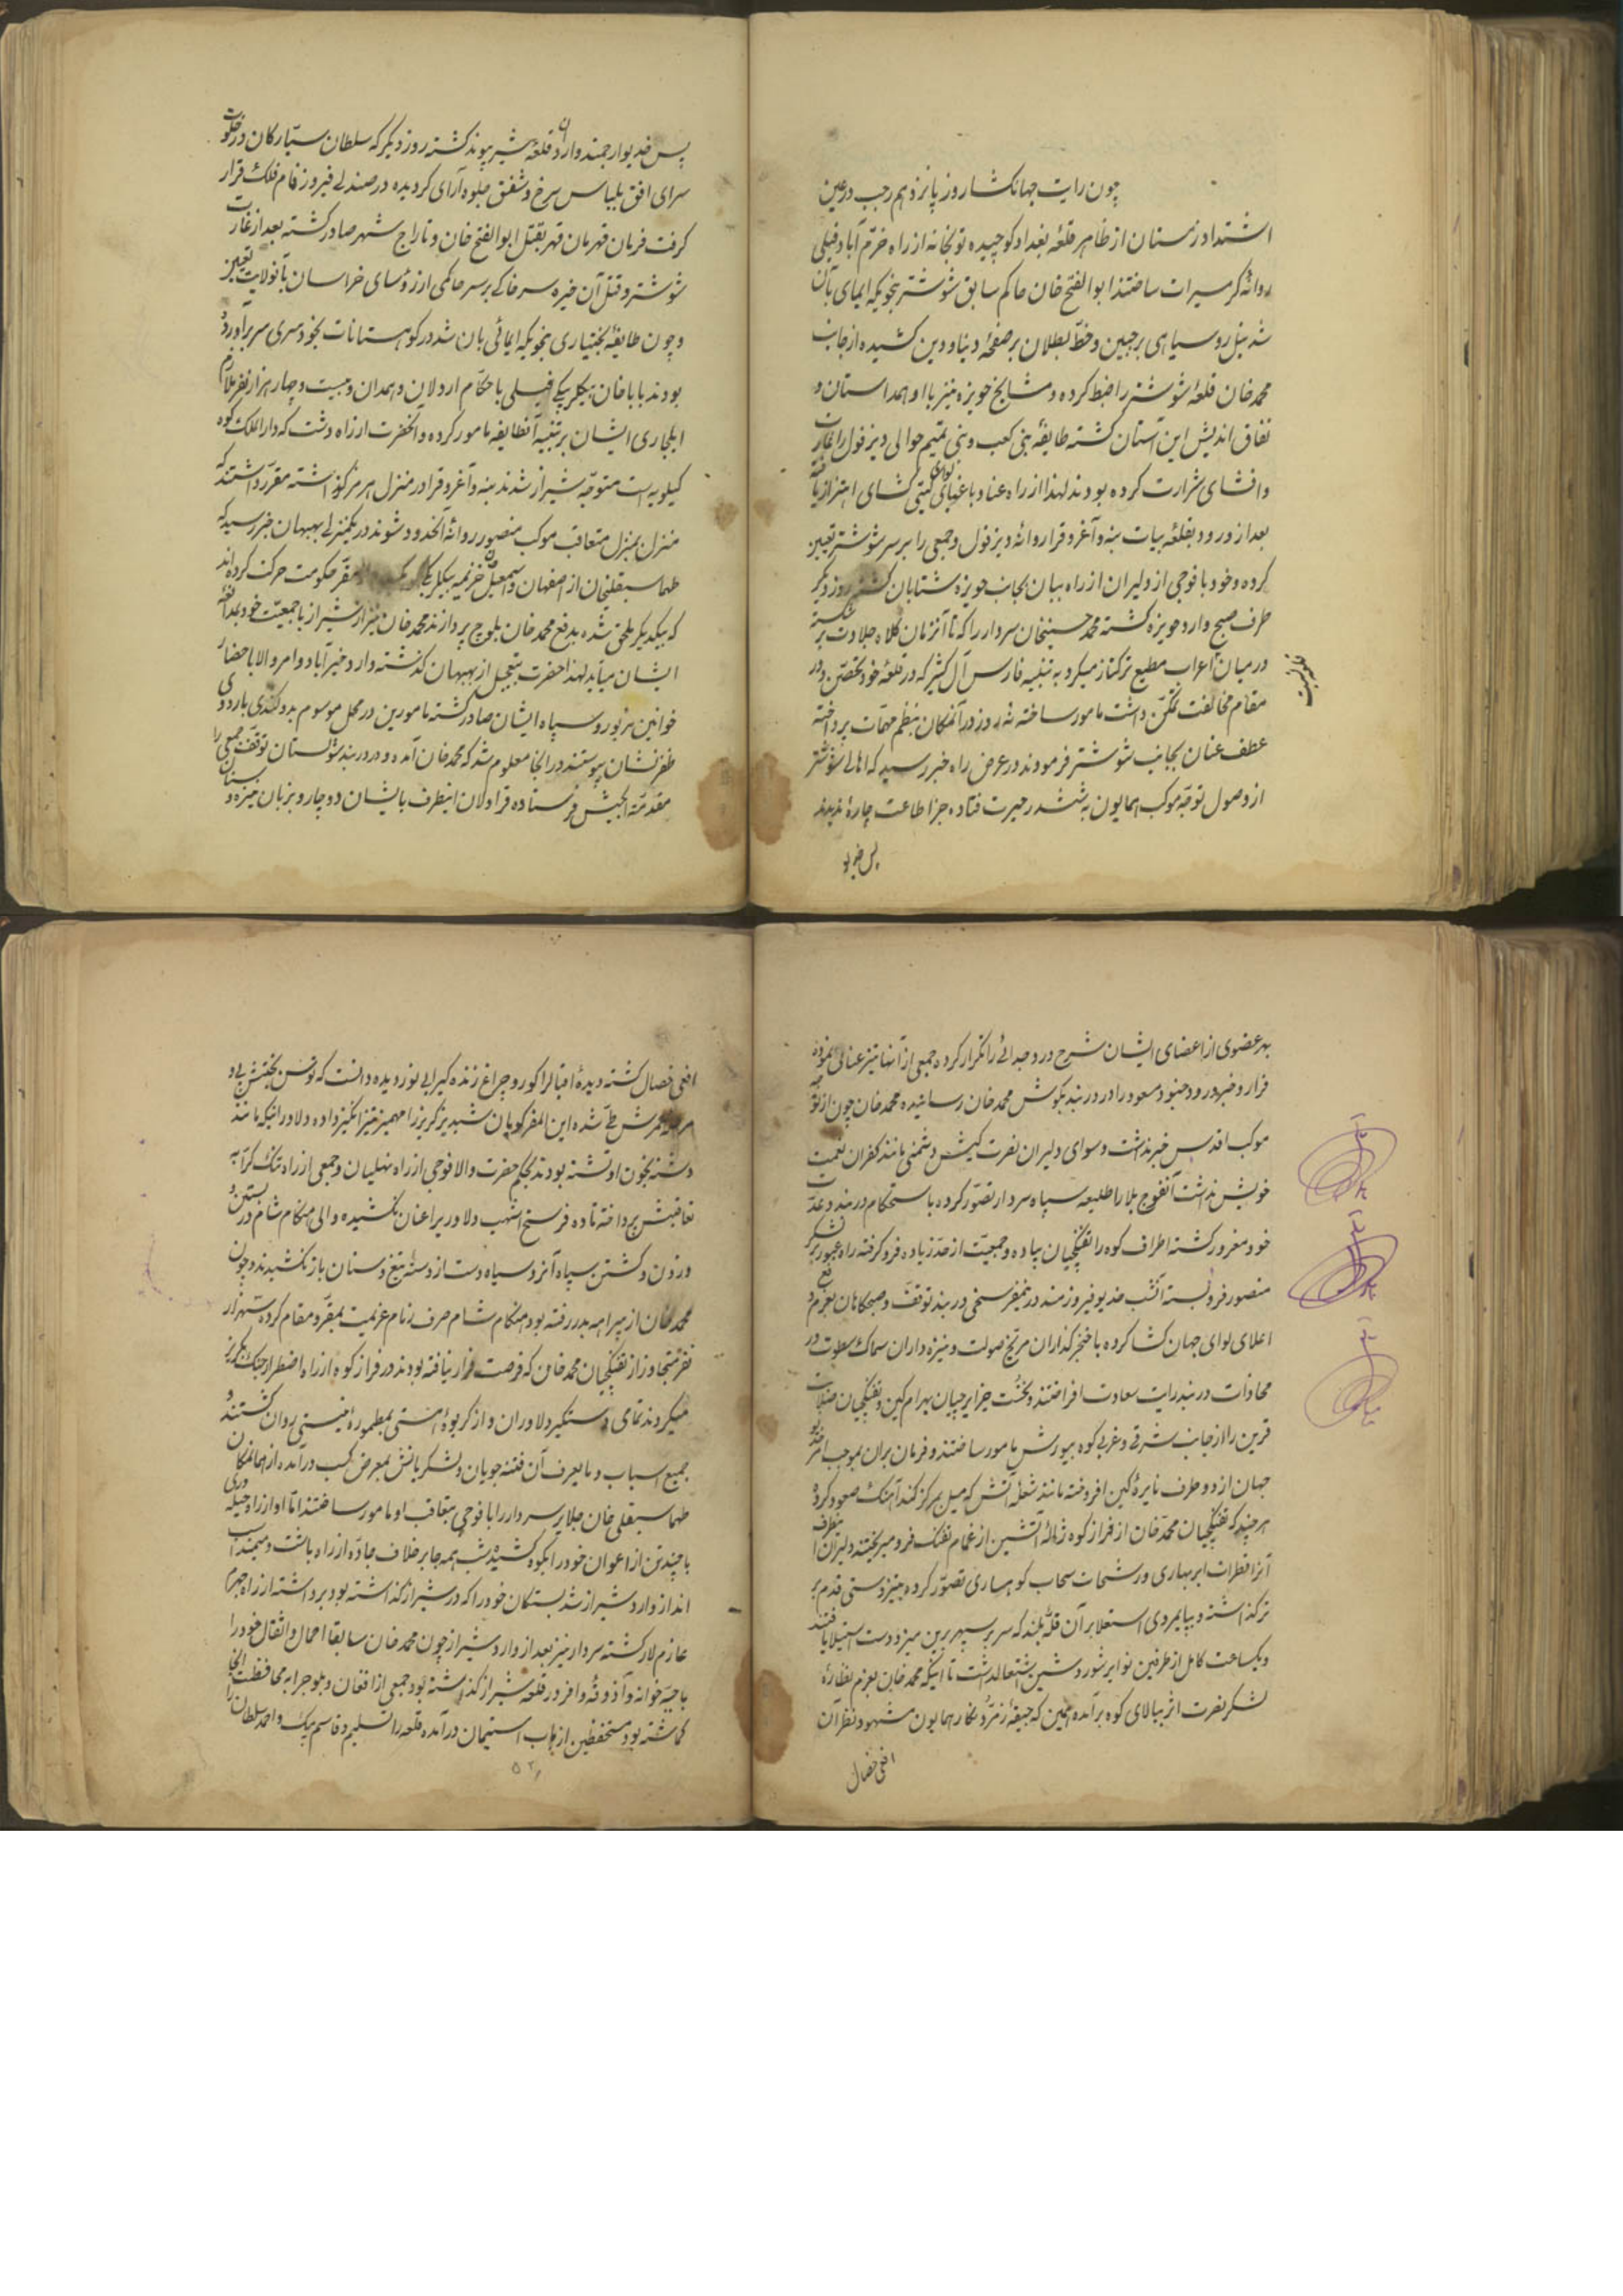 چون رایت جهانگشا روز پانزدهم رجب در عین
اشتداد زمستان از ظاهر قلعهٔ بغداد کوچیده توپخانه از راه خرّم آباد فیلی
روانهٔ گرمسیرات ساختند ابوالفتح خان حاکم سابق شوشتر بنحویکه ایمای بآن
شد نیل روسیاهی بر جبین و خطّ بطلان بر صفحهٔ دنیا و دین کشیده از جانب
محمد خان قلعهٔ شوشتر را ضبط کرده و مشایخ حویزه نیز با او همداستان و
نفاق اندیش این آستان کشته طایفهٔ بنی کعب و بنی تمیم حوالی دیزفول را غارت
و افشای شرارت کرده بودند لهذا از راه عناد باغیان لوای کیتی کشای اهتزاز یافته
بعد از ورود بقلعهٔ بیات بنه و آغرو قرا روانهٔ دیزفول و جمعی را بر سر شوشتر تعیین
کرده و خود با فوجی از دلیران از راه بیان بجانب حویزه شتابان کشته روز دیکر
طرف صبح وارد حویزه کشته محمد حسینخان سردار را که تا آنزمان کلاه جلادت بر شکسته
در میان اعراب مطیع ترکتاز میکرد به تنبیه فارس آل کثیر که در قلعهٔ خود تحصّن و در
مقام مخالفت تمکّن داشت مامور ساخته سه روز در آنمکان بنظم مهمّات پرداخته
عطف عنان بجانب شوشتر فرمودند در عرض راه خبر رسید که اهالی شوشتر
از وصول توجّه موکب همایون به ششدر حیرت فتاده جز اطاعت چارهٔ ندیدند
پس خدیو
پس خدیو ارجمند وارد قلعهٔ شیر پیوند کشته روز دیکر که سلطان سیّارکان در خلوت
سرای افق بلباس سرخ شفق جلوه آرای کردیده در صندلی فیروزه فام فلک قرار
کرفت فرمان قهرمان قهر بقتل ابوالفتح خان و تاراج شهر صادر کشته بعد از غارت
شوشتر و قتل آن خیره سر خاکی بر سر حاکمی از رؤسای خراسان بآنولایت تعیین
و چون طایفهٔ بختیاری بنحویکه ایمائی بان شد در کوهستانات بخودسری سر برآورده
بودند بابا خان بیکلربیکی فیلی با حکّام اردلان و همدان و بیست و چهار هزار نفر ملازم
ایلجاری ایشان بر تنبیه آنطایفه مامور کرده و آنحضرت از راه دشت که دارالملک کوه
کیلویه است متوجّه شیراز شدند بنه و آغرو قرا در منزل هرمز کوز اشته مقرّر داشتند که
منزل بمنزل متعاقب موکب منصور روانهٔ آنحدود شوند در یکمنزلی بهبهان خبر رسید که
طهماسبقلیخان از اصفهان و اسمعیل خان خزیمه بیکلربیکی مقرّ حکومت حرکت کرده اند
که بیکدیکر ملحق شده بدفع محمد خان بلوچ پردازند محمد خان نیز از شیراز با جمعیّت خود بمدافعهٔ
ایشان میآید لهذا حضرت بتعجیل از بهبهان کذشته وارد خیرآباد و امر والا باحضار
خوانین مزبور و سپاه ایشان صادر کشته مامورین در محل موسوم بدوکنبدی باردوی
ظفرنشان پیوستند در انجا معلوم شد که محمد خان آمده و در دربند شولستان توقّف جمعی را
مقدّمة الجیش فرستاده قراولان اینطرف بایشان دوچار و بزبان نیزه و سنان
بهر عضوی از اعضای ایشان شرح درد جدائی را تکرار کرده جمعی از آنها تیزعنانی نموده
فرار و خبر ورود جنود مسعود را در دربند بکوش محمد خان رسانیده محمد خان چون از توجّه
موکب اقدس خبر نداشت و سوای دلیران نصرت کیش دشمنی مانند کفران نعمت
خویش نداشت آنفوج بلا را طلیعه سپاه سردار تصوّر کرده باستحکام دربند و عدّت
خود مغرور کشته اطراف کوه را تفنکچیان پیاده و جمعیّت از حدّ زیاده فرو کرفته راه عبور بر لشکر
منصور فرو بسته آنشب خدیو فیروزمند در نیمفرسخی دربند توقّف و صبحکاهان بعزم دفع
اعلای لوای جهان کشا کرده با خنجر کذاران مریخ صولت و نیزه داران سماک سطوت در
محاذات دربند رایت سعادت افراختند و نخست جزایرچیان بهرام کین و تفنکچیان صلابت
قرین را از جانب شرقی و غربی کوه بیورش مامور ساختند و فرمان بران بموجب امر خدیو
جهان از دو طرف نایرهٔ کین افروخته مانند شعلهٔ آتش که میل بمرکز کند آهنک صعود کرده
هر چند که تفنکچیان محمد خان از فراز کوه ژالهٔ آتشین از غمام تفنک فرو میریختند دلیران اینطرف
آنرا قطرات ابر بهاری و رشحات سحاب کوهساری تصوّر کرده بتیزدستی قدم بر
تر کذاشته و بپایمردی استعلا بر آن قلّهٔ بلند که سر بر سپهر برین میزد دست استیلا یافتند
و یکساعت کامل از طرفین نوایر شور و شین اشتعال داشت تا اینکه محمد خان بعزم نظارهٔ
لشکر نصرت اثر ببالای کوه برآمده همین که جیقهٔ زمرّد نکار همایون مشهود نظر آن
افعی خصال
افعی خصال کشته دیدهٔ اقبالرا کور و چراغ زنده کیرا بی نور دیده دانست که توسن بختش بی و
مرحلهٔ عمرش طی شده این المفر کویان شبدیز کریز را مهمیز تیز انکیز داده دلاورانیکه مانند
دشنه بخون او تشنه بودند بحکم حضرت والا فوجی از راه نهلیان و جمعی از راه تنک کرآبه
تعاقبش پرداخته تا ده فرسخ اشهب دلاوریرا عنان نکشیده و الی هنکام شام در بستن و
دریدن و کشتن سپاه آنروسیاه دست از دستهٔ تیغ و سنان باز نکشیدند و چون
محمد خان از بیراهه بدر رفته بود هنکام شام صرف زمام عزیمت بمقرّ و مقام کرده سه هزار
نفر متجاوز از تفنکچیان محمد خان که فرصت فرار نیافته بودند در فراز کوه از راه اضطرار جنک بکریز
میکردند تمامی دستکیر دلاوران و از کریوهٔ هستی بمطمورهٔ نیستی روان کشتند و
جمیع اسباب و مایعرف آن فتنه جویان و لشکریانش بمعرض کسب درآمده از همانمکان
طهماسبقلی خان جلایر سردار را با فوجی بتعاقب او مامور ساختند امّا او از راه حیله وری
با چند تن از اعوان خود را بکوه کشیده شب همه جا بر خلاف جادّه از راه باشت
انداز وارد شیراز شد بستکان خود را که در شیراز کذاشته بود برداشته از راه جهرم
عازم لار کشته سردار نیز بعد از وارد شیراز چون محمد خان سابقا احمال و اثقال خود را
با جبّه خانه و آذوقهٔ وافر در قلعهٔ شیراز کذاشته بود جمعی از افغان و بلوج را به محافظت آنجا
کماشته بود مستحفظین از باب استیمان درآمده قلعه را تسلیم و قاسم بیک و احمد سلطان را